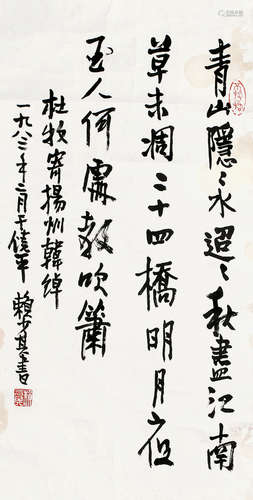 青山隱〻水迢〻秋盡江南
草未凋二十四橋明月夜
玉人何處教吹簫
杜牧寄揚州韓綽
一九八三年二月于
賴少其書